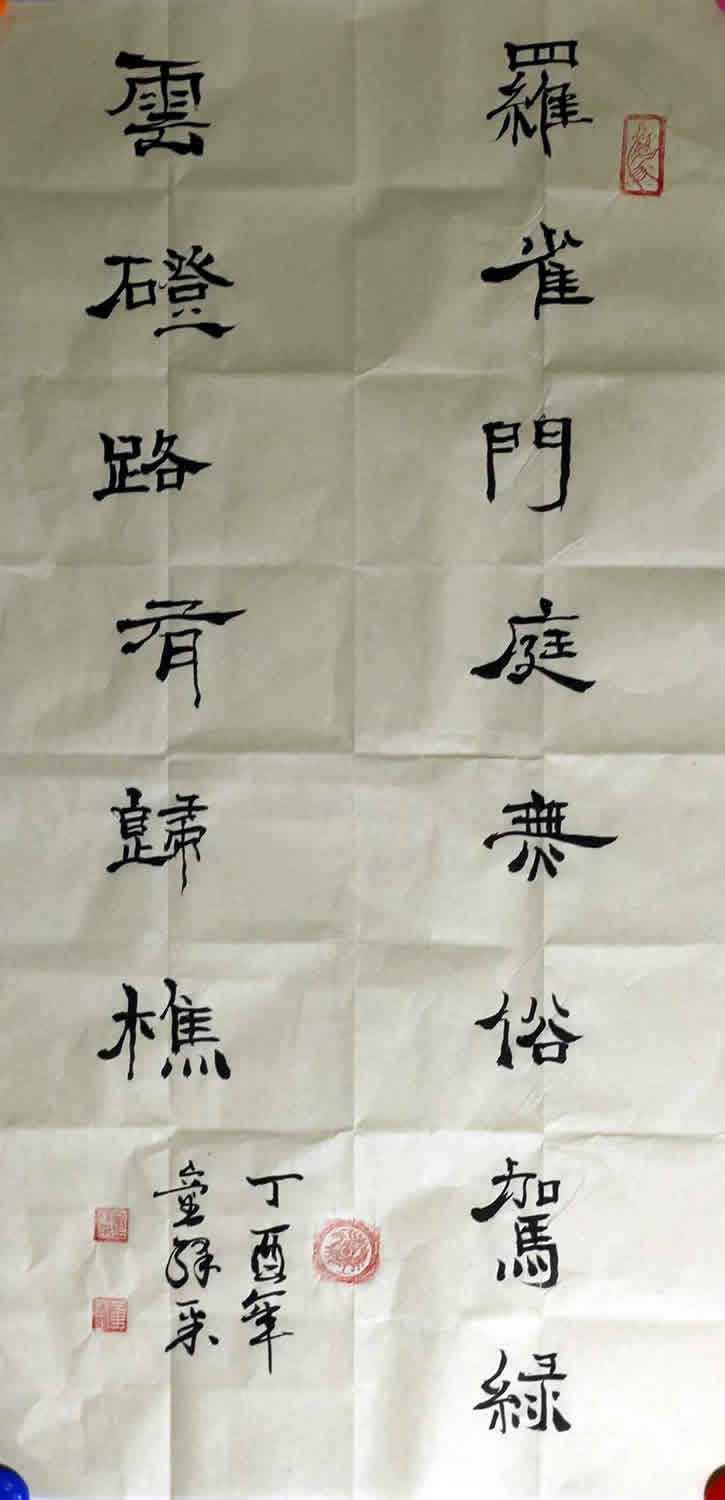 羅雀門庭無俗駕綠
雲磴路有歸樵
丁酉年
童繹采